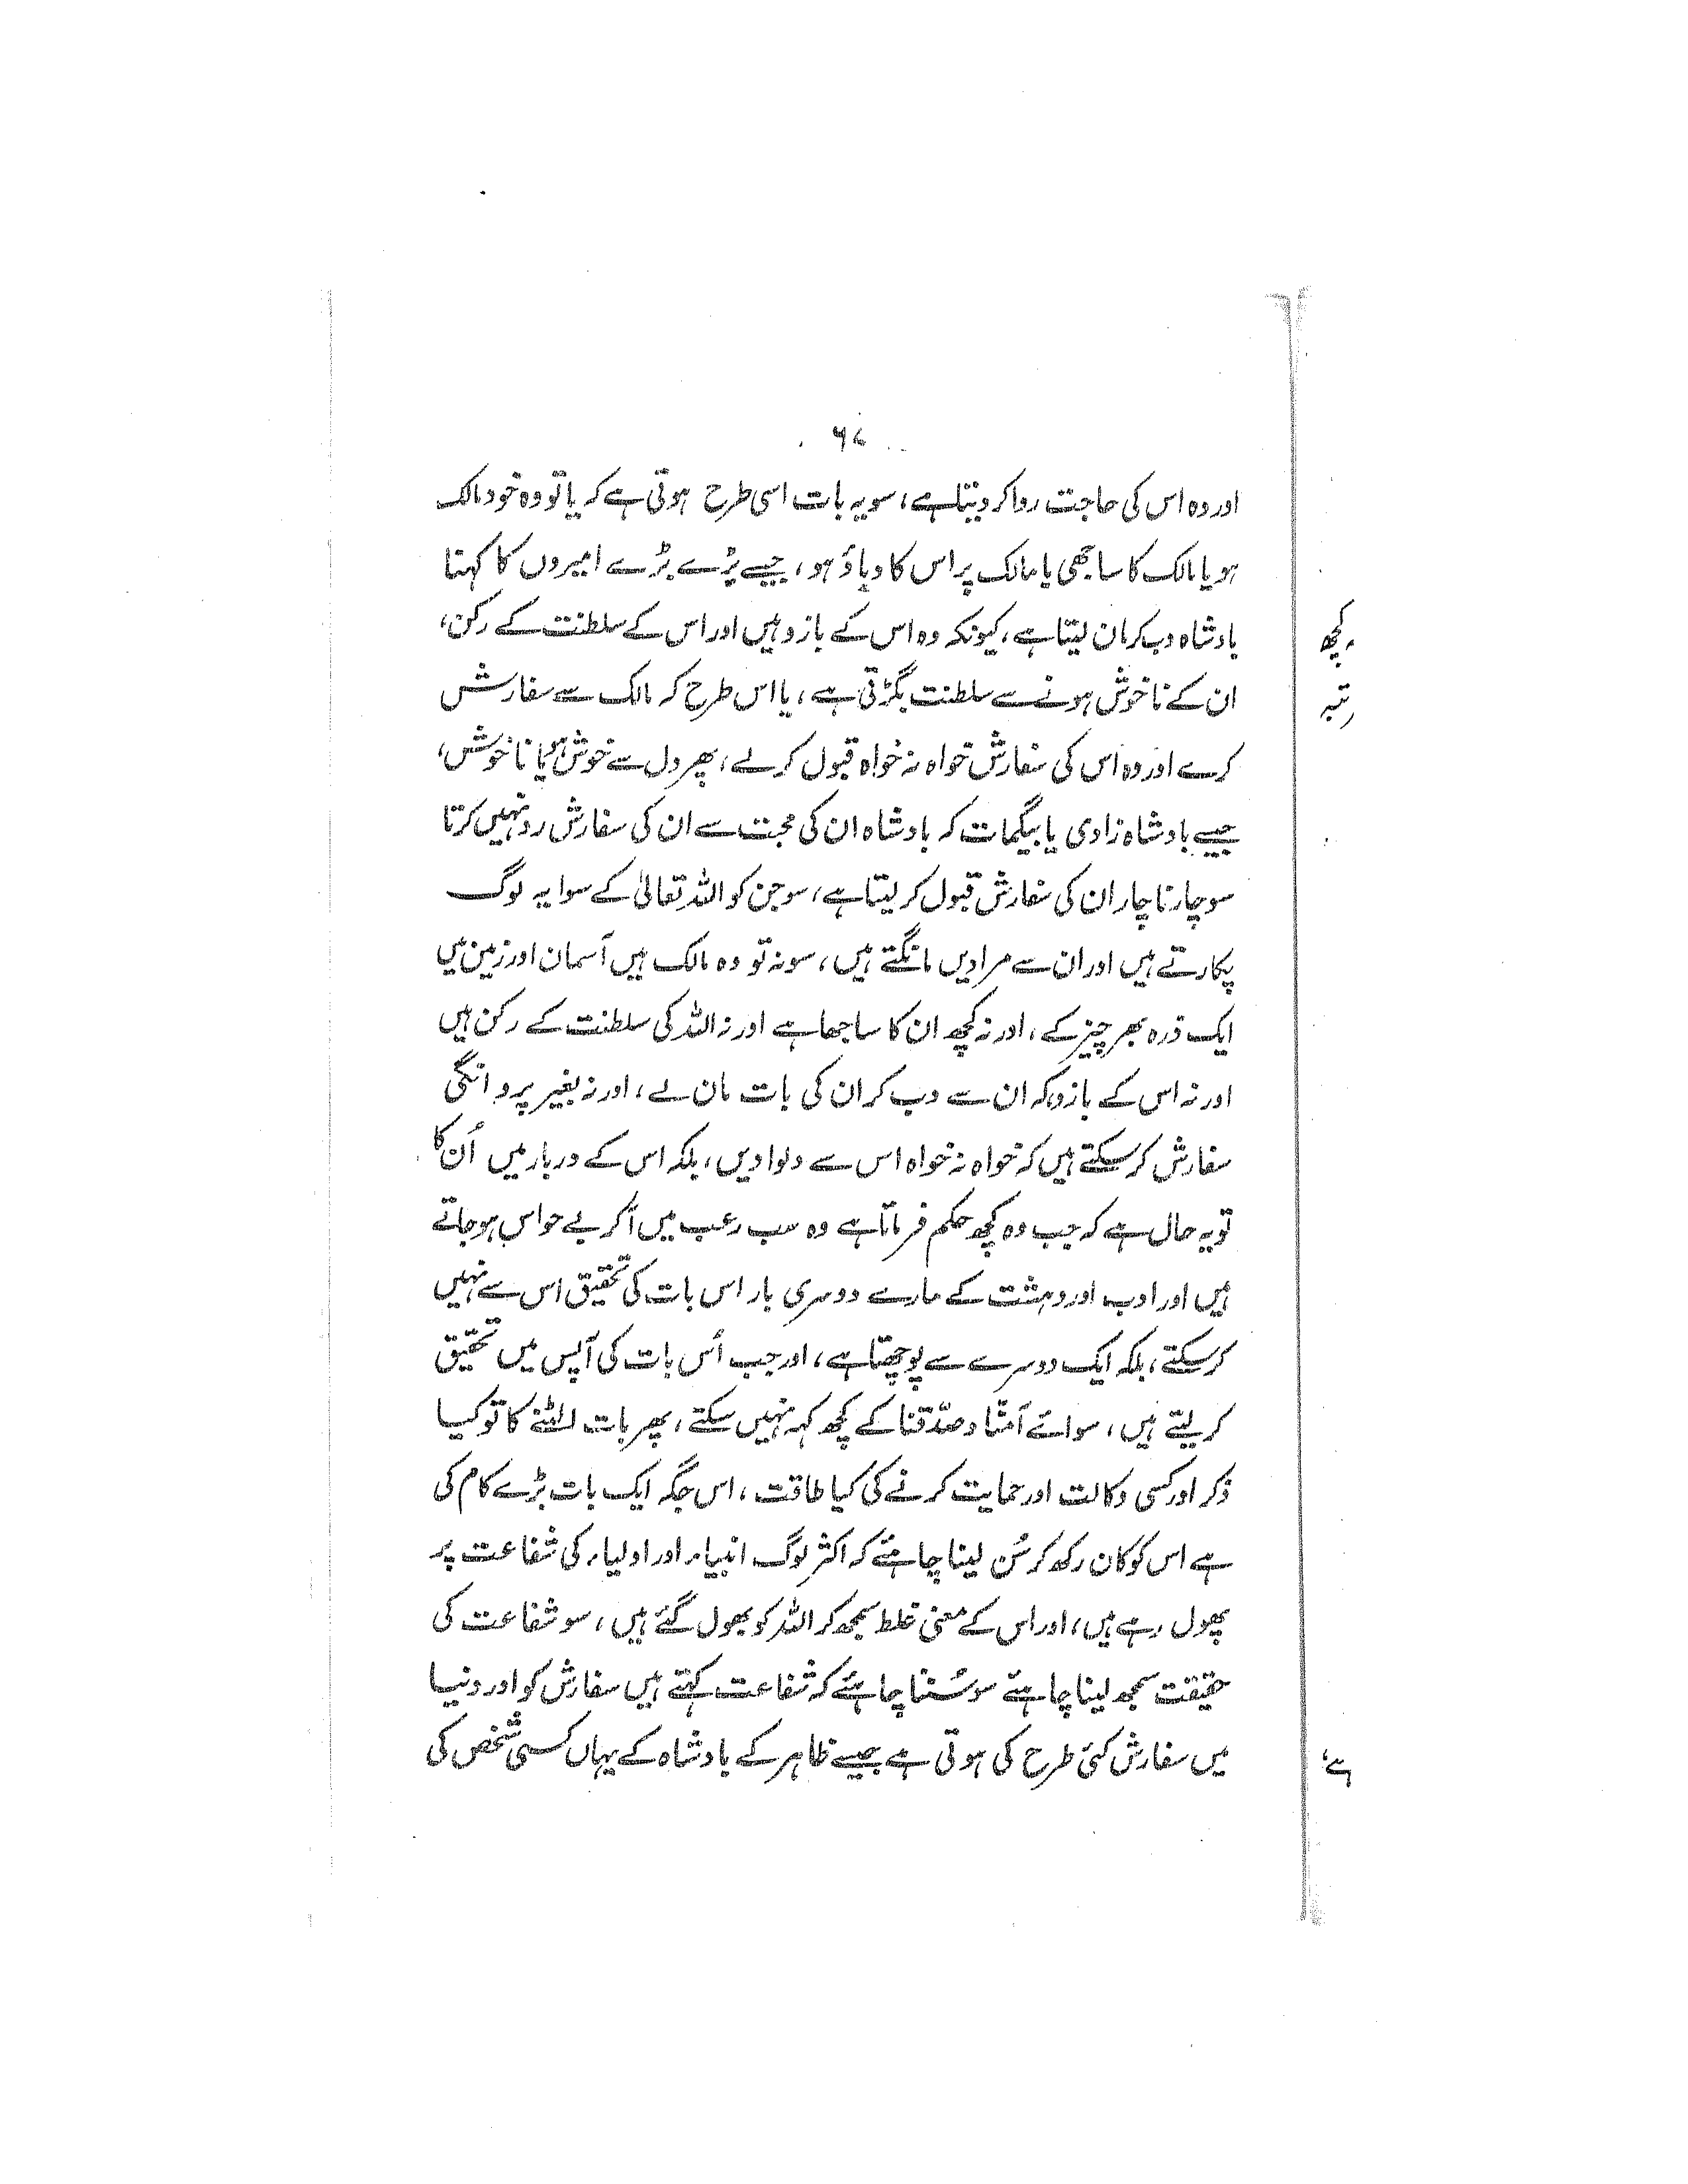 ۶۷
اور وہ اس کی حاجت روا کر دیتا ہے، سو یہ بات اسی طرح ہوتی ہے کہ یا تو وہ خود مالک
ہو یا مالک کا ساجھی یا مالک پر اس کا دباؤ ہو، جیسے بڑے بڑے امیروں کا کہنا
بادشاہ دب کر مان لیتا ہے، کیونکہ وہ اس کے بازو ہیں اور اس کے سلطنت کے رکن،
ان کے ناخوش ہونے سے سلطنت بگڑتی ہے، یا اس طرح کہ مالک سے سفارش
کرے اور وہ اس کی سفارش خواہ نہ خواہ قبول کرلے، پھر دل سے خوش ہو یا ناخوش،
جیسے بادشاہ زادی یا بیگمات کہ بادشاہ ان کی محبت سے ان کی سفارش رد نہیں کرتا
سو چار نا چار ان کی سفارش قبول کر لیتا ہے، سو جن کو اللہ تعالیٰ کے سوا یہ لوگ
پکارتے ہیں اور ان سے مرادیں مانگتے ہیں، سو نہ تو وہ مالک ہیں آسمان اور زمین میں
ایک ذرہ بھر چیز کے، اور نہ کچھ ان کا ساجھا ہے اور نہ اللہ کی سلطنت کے رکن ہیں
اور نہ اس کے بازو کہ ان سے دب کر ان کی بات مان لے، اور نہ بغیر پروانگی
سفارش کر سکتے ہیں کہ خواہ نہ خواہ اس سے دلوا دیں، بلکہ اس کے دربار میں اُن کا
تو یہ حال ہے کہ جب وہ کچھ حکم فرماتا ہے وہ سب رعب میں آکر بے حواس ہو جاتے
ہیں اور ادب اور دہشت کے مارے دوسری بار اس بات کی تحقیق اس سے نہیں
کر سکتے، بلکہ ایک دوسرے سے پوچھتا ہے، اور جب اُس بات کی آپس میں تحقیق
کر لیتے ہیں، سوائے اٰمنّا وصدّقنا کے کچھ کہہ نہیں سکتے، پھر بات الٹنے کا تو کیا
ذکر اور کسی وکالت اور حمایت کرنے کی کیا طاقت، اس جگہ ایک بات بڑے کام کی
ہے اس کو کان رکھ کر سُن لینا چاہئے کہ اکثر لوگ انبیاء اور اولیاء کی شفاعت پر
پھول رہے ہیں، اور اس کے معنی غلط سمجھ کر اللہ کو بھول گئے ہیں، سو شفاعت کی
حقیقت سمجھ لینا چاہئے سو سُننا چاہئے کہ شفاعت کہتے ہیں سفارش کو اور دنیا
میں سفارش کئی طرح کی ہوتی ہے جیسے ظاہر کے بادشاہ کے یہاں کسی شخص کی
کچھ
رتبہ
ہے،